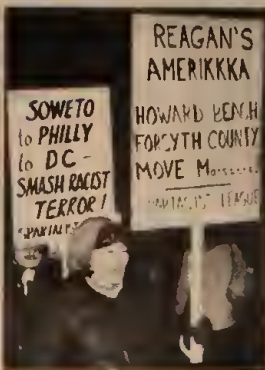 SOWETO
to PHILLY
to DC-
SMASH RACIST
TERROR!
REAGAN'S
AMERIKKKA
HOWARD BEACH
FORSYTH COUNTY
MOVE
LEAGUE